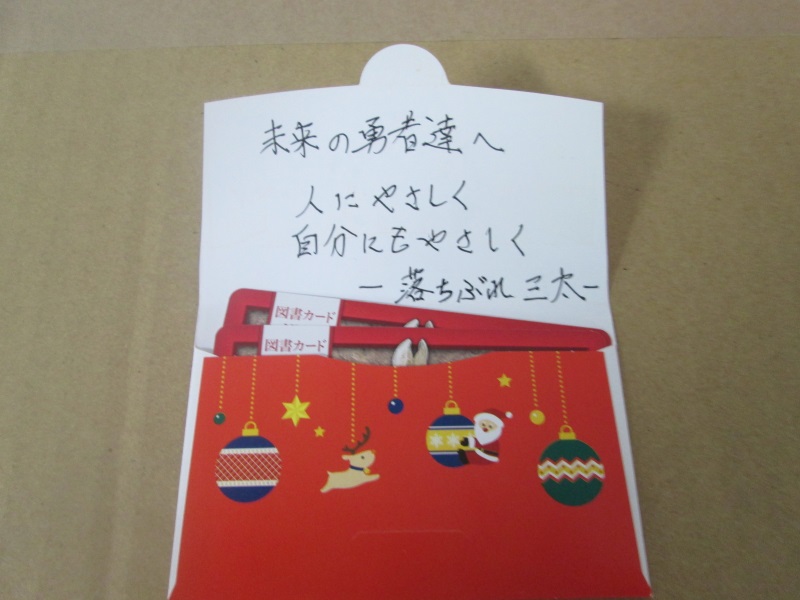 未来の勇者達へ
人にやさしく
自分にもやさしく
ー落ちぶれ三太ー
図書カード
図書カード